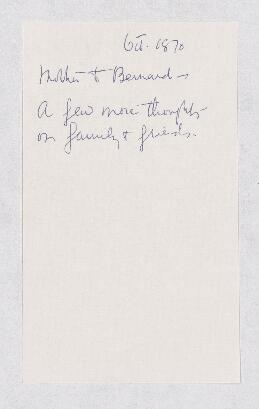 Oct. 1870
Mother to Bernard -
A few more thoughts
on family & friends.